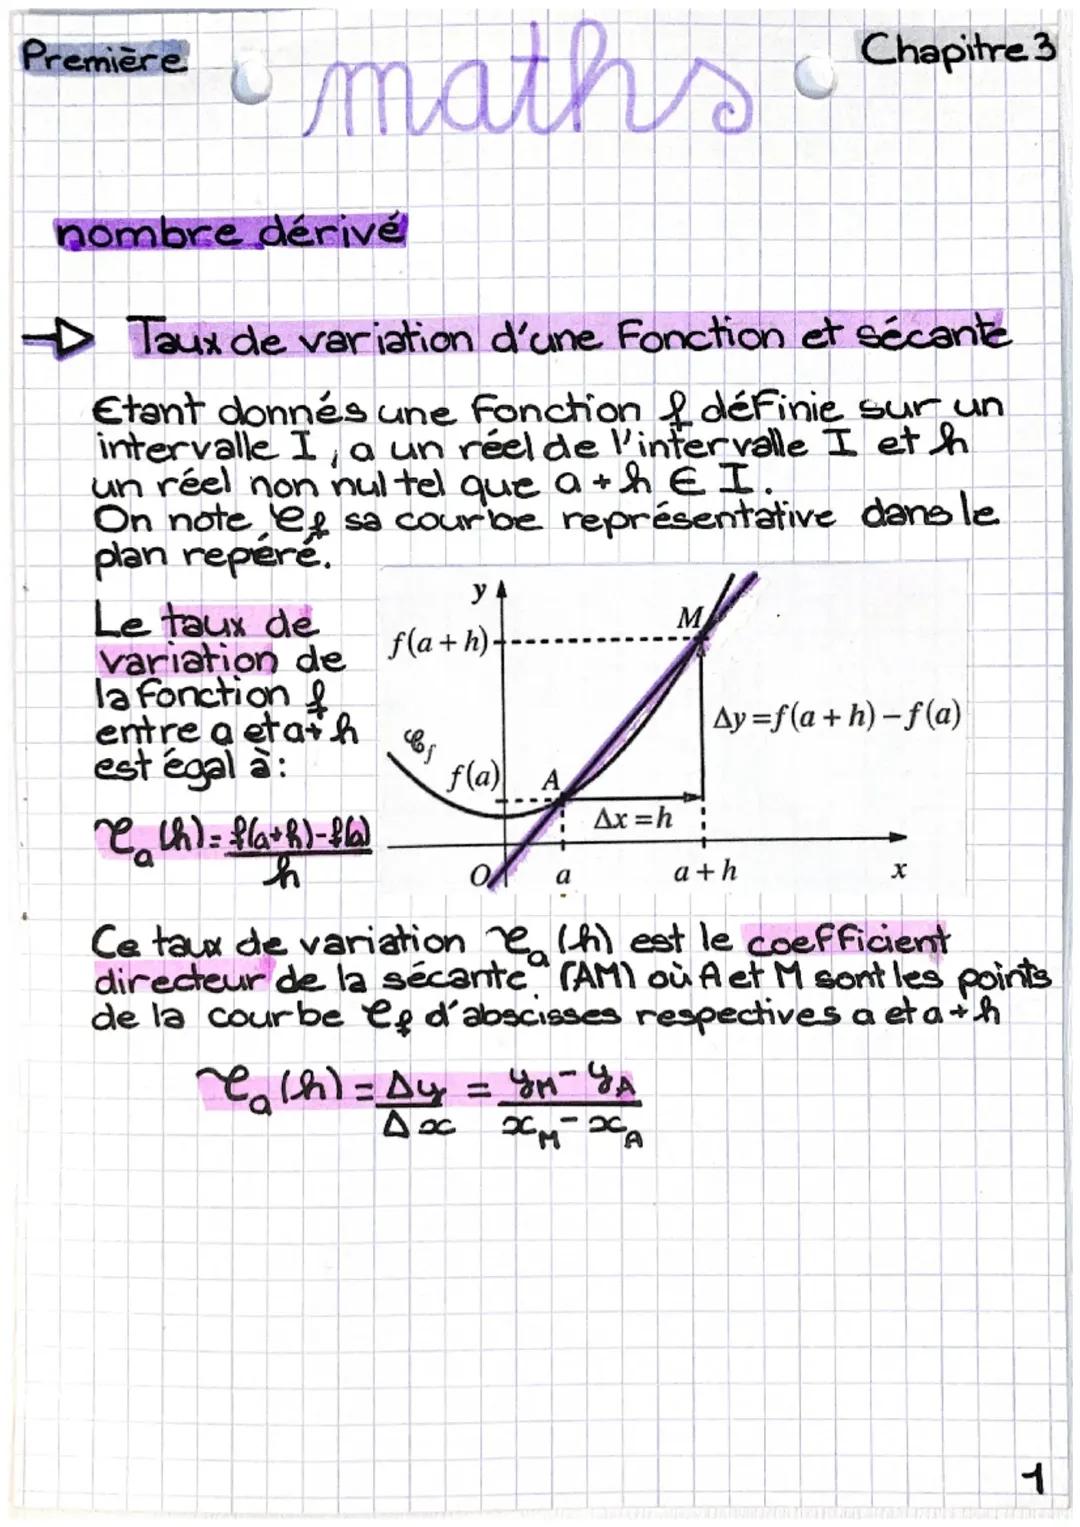 Première
maths
Chapitre 3
nombre dérivé
→ Taux de variation d'une Fonction et sécante
Etant donnés une Fonction f déFinie sur un
intervalle I, a un réel de l'intervalle I et h
un réel non nul tel que a + h ∈ I.
On note 𝒞f sa courbe représentative dans le
plan repéré.
Le taux de
variation de
la Fonction f
entre a et a+h
est égal à :
τₐ(h) = f(a+h)-f(a)
h
y
f(a+h)
M
Δy=f(a+h)−f(a)
𝒞f
f(a)
A
Δx=h
O
a
a+h
x
Ce taux de variation τₐ(h) est le coefficient
directeur de la sécante (AM) où A et M sont les points
de la courbe 𝒞f d'abscisses respectives a et a+h
τₐ(h) = Δy = yM - yA
Δx xM - xA
1